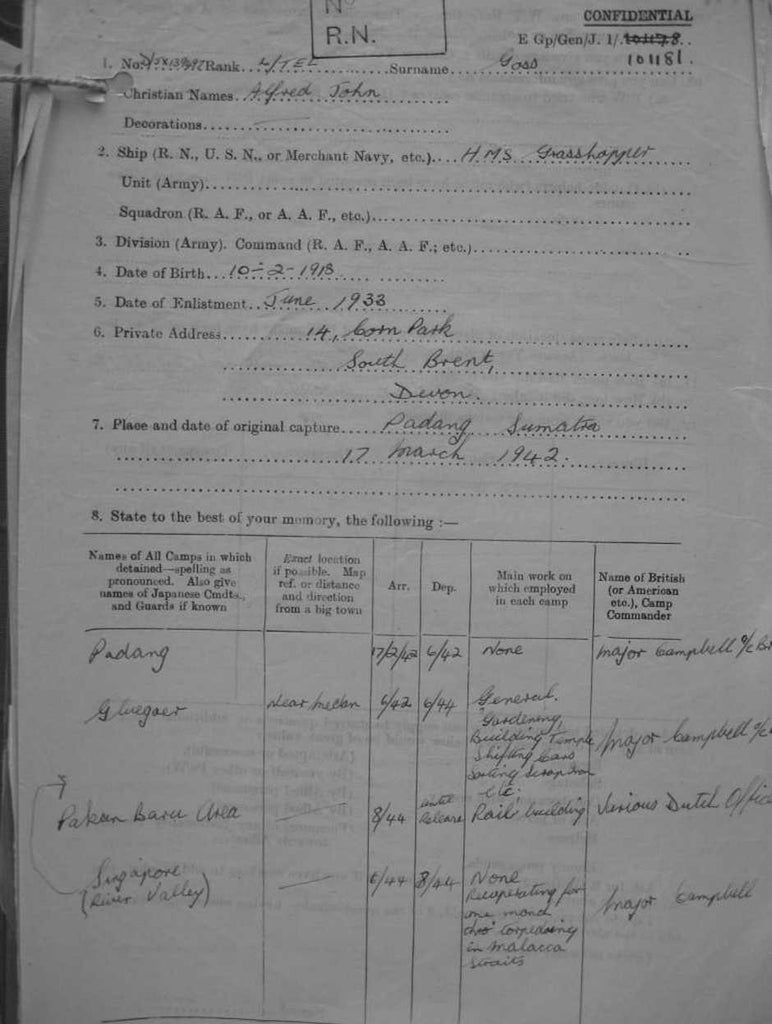 No
R.N.
CONFIDENTIAL
E Gp/Gen/J. 1/. 101178.
101181.
1. No. Rank. L/TEL Surname Goss
Christian Names. Alfred John
Decorations
2. Ship (R. N., U. S. N., or Merchant Navy, etc.) H.M.S. Grasshopper
Unit (Army)
Squadron (R. A. F., or A. A. F., etc.)
3. Division (Army). Command (R. A. F., A. A. F.; etc.)
4. Date of Birth 10-2-1913
5. Date of Enlistment June 1933
6. Private Address 14, Corn Park
South Brent,
Devon.
7. Place and date of original capture Padang Sumatra
17 March 1942.
8. State to the best of your memory, the following :—
Names of All Camps in which
detained—spelling as
pronounced. Also give
names of Japanese Cmdts.,
and Guards if known
Exact location
if possible. Map
ref. or distance
and direction
from a big town
Arr.
Dep.
Main work on
which employed
in each camp
Name of British
(or American
etc.), Camp
Commander
Padang 17/2/42 6/42 None Major Campbell o/c Br
Gluegoer Near Medan 6/42 6/44 General.
Gardening,
Building Temple
Shifting Cars
Sorting Scrap Iron
etc.
Major Campbell o/c
Pakan Baru Area 8/44 until
Release
Rail building Various Dutch Offic
Singapore
(River Valley)
6/44 8/44 None
Recuperating for
one month
thro' torpedoing
in Malacca
Straits
Major Campbell